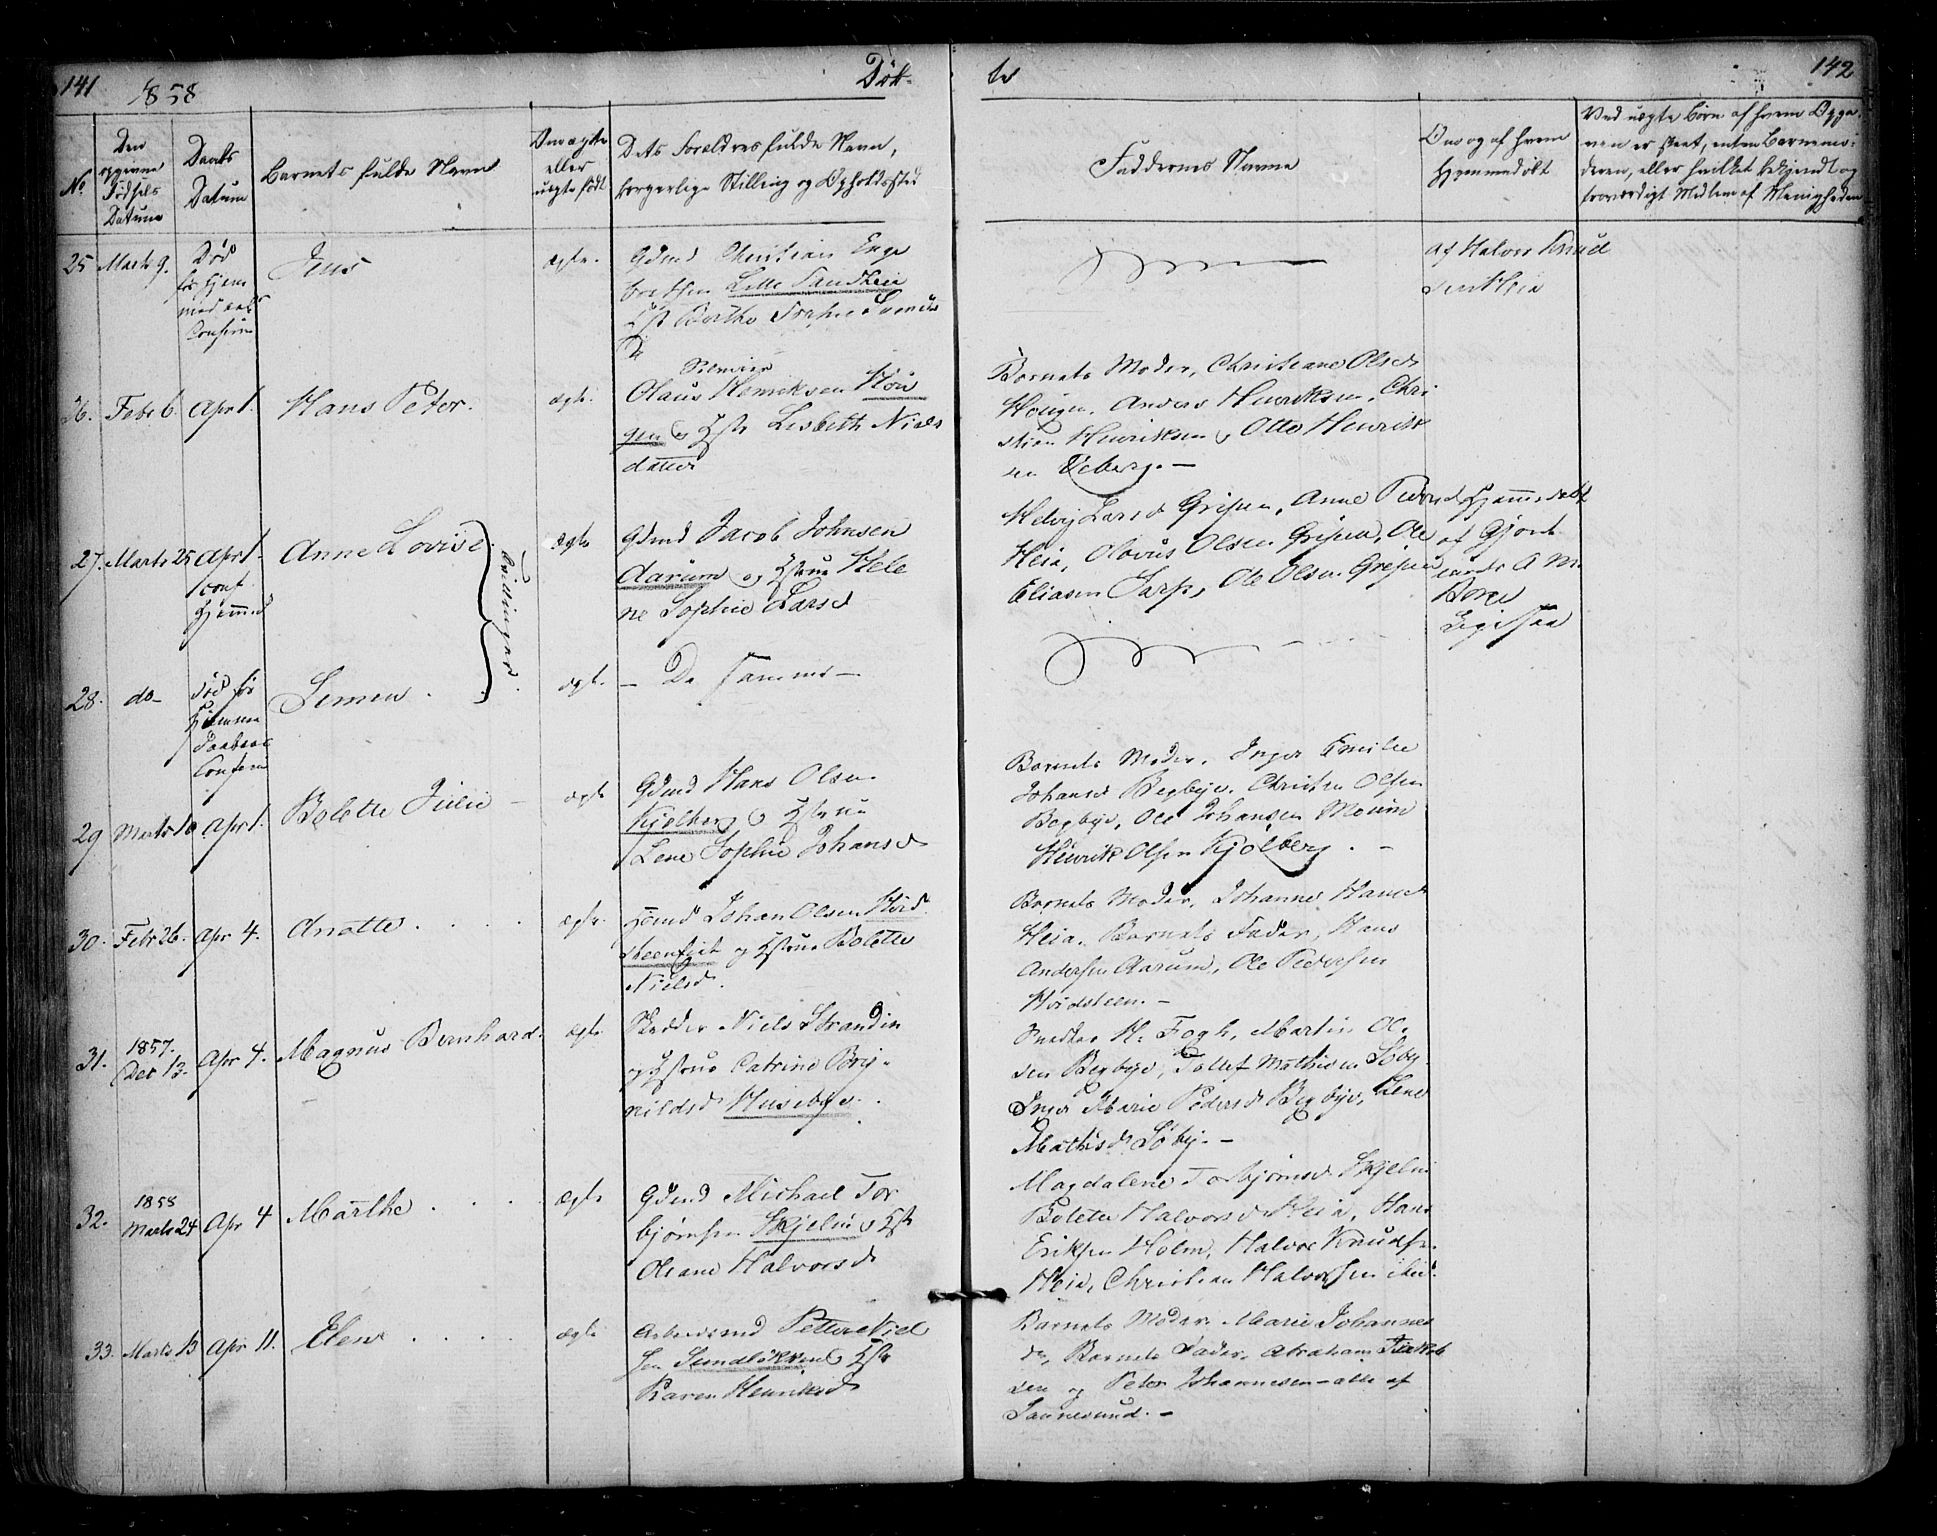 141
1858
Døb-
te
142
No
Den opgivne Fødsels Datum
Daabs Datum
Barnets fulde Navn
Om ægte eller uægte født
Dets Forældres fulde Navn,
borgerlige Stilling og Opholdssted
Faddernes Navne
Om og af hvem
hjemmedøbt
Ved uægte Børn af hvem Opga-
ven er skeet, enten Barnemo-
deren, eller hvilket bekjendt og
troværdigt Medlem af Menigheden
25 Marts 9.
Død
før Hjem
med
Jens
ægte.
Gdmd Christian Enge
bretsen Lille Sandheia
Hst Berthe Sophie
Af Halvor Knud
sen Heia
26. Febr 6. Apr 1. Hans Peter.
ægte.
Olaus Henriksen Hou
gen & Hstr Lisbeth Niels
datter
Barnets Moder, Christiane Olsd
Hougen, Anders Henriksen, Chri
stian Henriksen & Otto Henrik
sen Viberg. —
27. Marts 25 Apr 1.
conf
Hjemmed
Anne Lovise
Tvillinger.
ægte
Gdmd Jacob Johnsen
Aarum og Hstrue Hele
ne Sophie Larsd
Helvig Larsd Gripen, Anne Peders
Heia, Olavus Olsen Gripen, Ole
Eliasen Sarp, Ole Olsen Gripen
Hjemmedøbt
af Gjord
A M
28. do
død før
Hjemme
Daabens
Confirm
Simen.
ægte
— De samme —
29 Marts 10 Apr 1. Bolette Julie —
ægte
Gdmd Hans Olsen
Kjølberg & Hstrue
Lene Sophie Johansd
Barnets Moder, Inger Emilie
Johansd Begbye, Christen Olsen
Begbye, Ole Johansen
Henrik Olsen Kjølberg. —
30. Febr 26. Apr 4. Anette . . .
ægte.
Hmd Johan Olsen Hvid
steen og Hstrue Bolette
Nielsd.
Barnets Moder, Johanne Hansd
Heia, Barnets Fader, Hans
Andersen Aarum, Ole Pedersen
Hvidsteen. —
31. 1857. Dec 13. Apr 4. Magnus Bernhard.
ægte
Skrædder Niels Strandin
og Hstrue Catrine Bry-
nildsd Husebye.
Snedker H. Fogh, Martin Ol-
sen Begbye, Tollef Mathisen Löby
Inger Marie Pedersd Begbye, Lene
Mathisd Löby. —
32. 1858 Marts 24 Apr 4 Marthe . . .
ægte
Gdmd Michael Tor
bjørnsen Skjelin & Hst
Oleane Halvorsd
Magdalene Torbjørnsd Skjelin
Bolette Halvorsd Heia, Hans
Eriksen Holm, Halvor Knuds.
Heia, Christian Halvorsen ibid.
33. Marts 13 Apr 11. Elene . . .
ægte
Arbeidsmd Petter Niel
sen Sundløkken & Hstr
Karen Henriksd
Barnets Moder, Marie Johannes
dr, Barnets Fader, Abraham
sen og Peter Johannesen — alle af
Sannesund. —